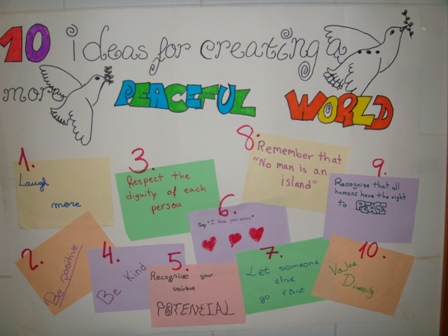 10 ideas for creating a
more PEACEFUL WORLD
1.
Laugh
more
2.
Be positive
3.
Respect the
dignity of each
person
4.
Be Kind
5.
Recognise your
unique
POTENTIAL
6.
Say "I love you more"
7.
Let someone
else
go first
8.
Remember that
"No man is an
island"
9.
Recognise that all
humans have the right
to PEACE
10.
Value
Diversity